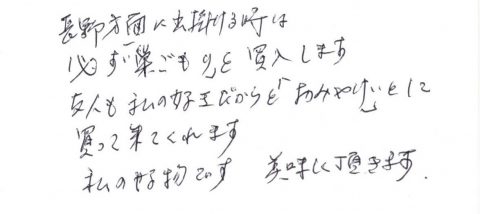 長野方面に出掛ける時は
必ず「巣ごもり」を買入します
友人も私の好王だからと「おみやげ」として
買って来てくれます
私の好物です　美味しく頂きます.